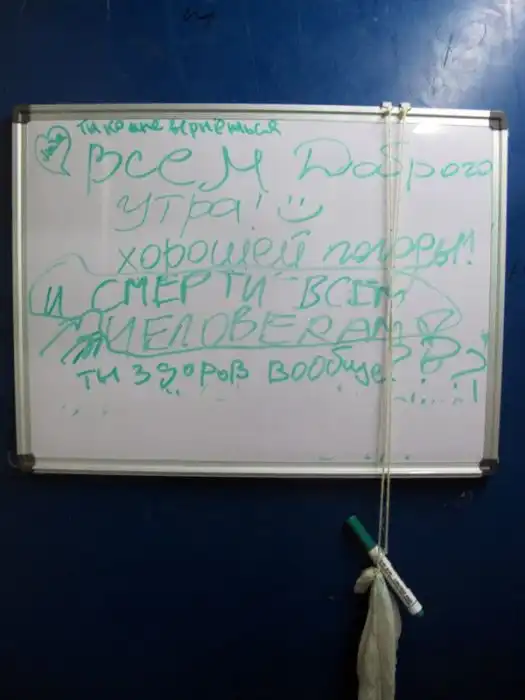 ты ко мне вернёшься
Всем Доброго
утра!
хорошей погоды!
и СМЕРТИ ВСЕМ
ЧЕЛОВЕКАМ
ты здоров вообще???